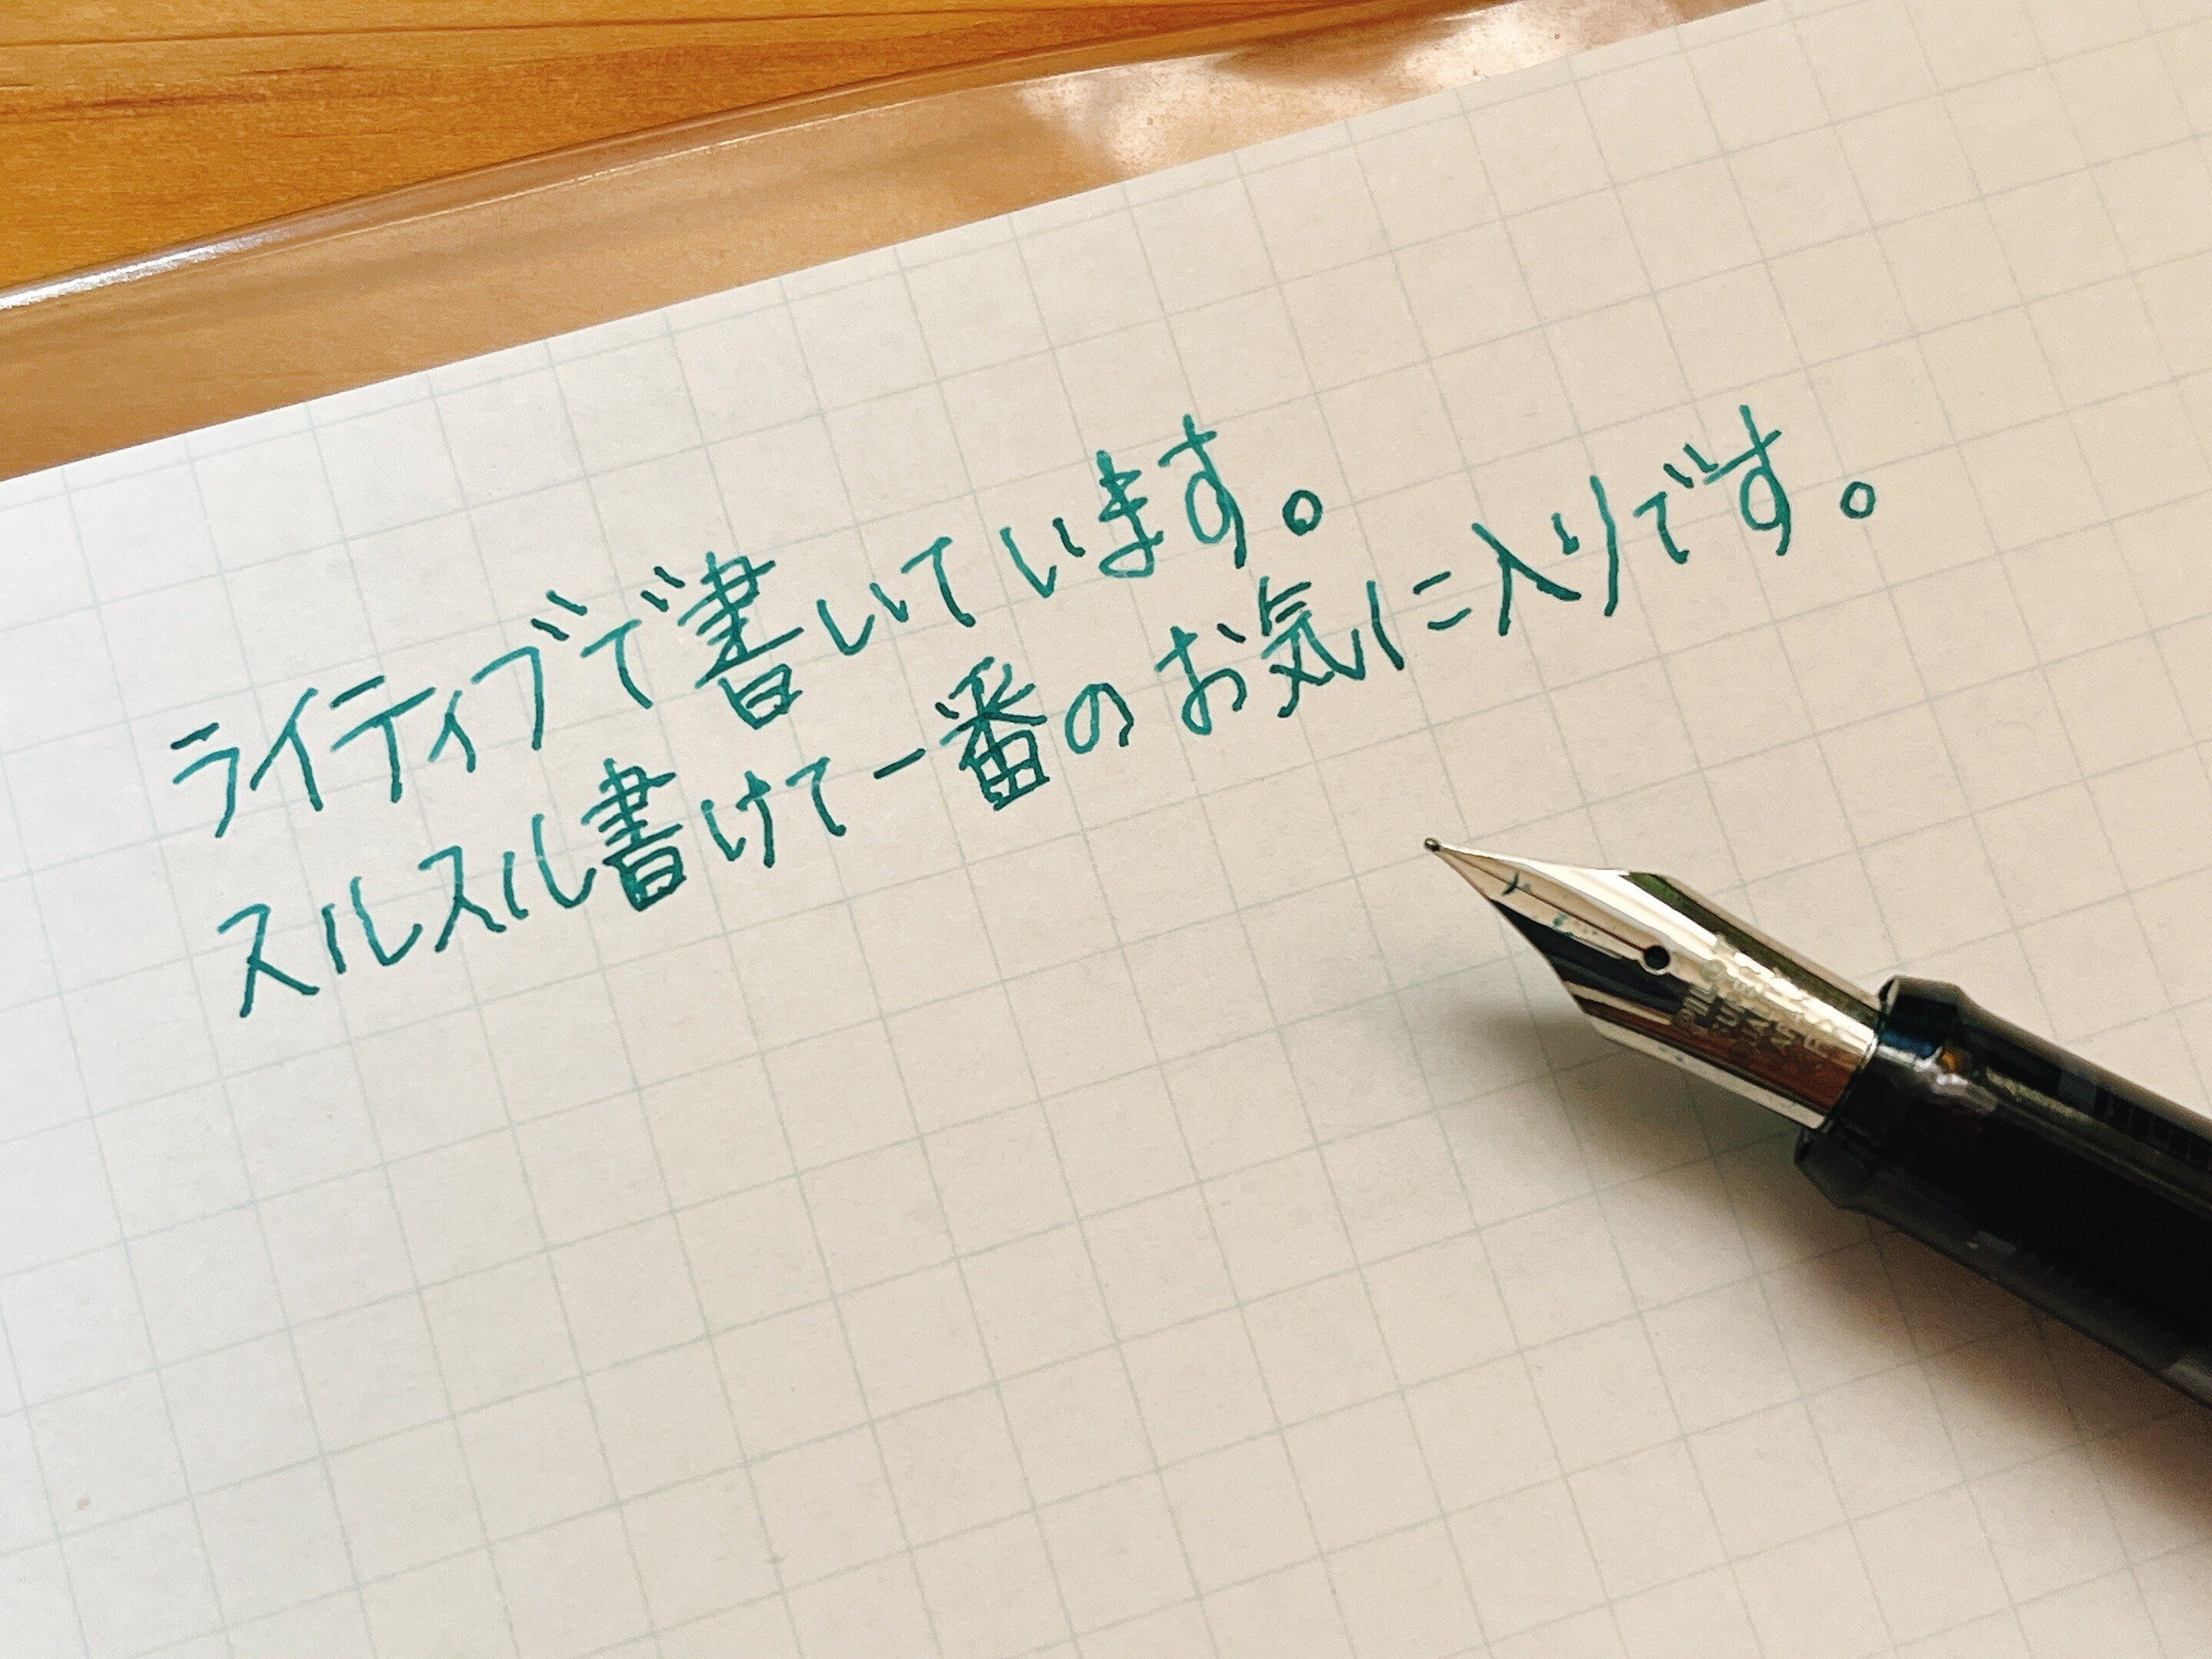 ライティブで書いています。
スルスル書けて一番のお気に入りです。